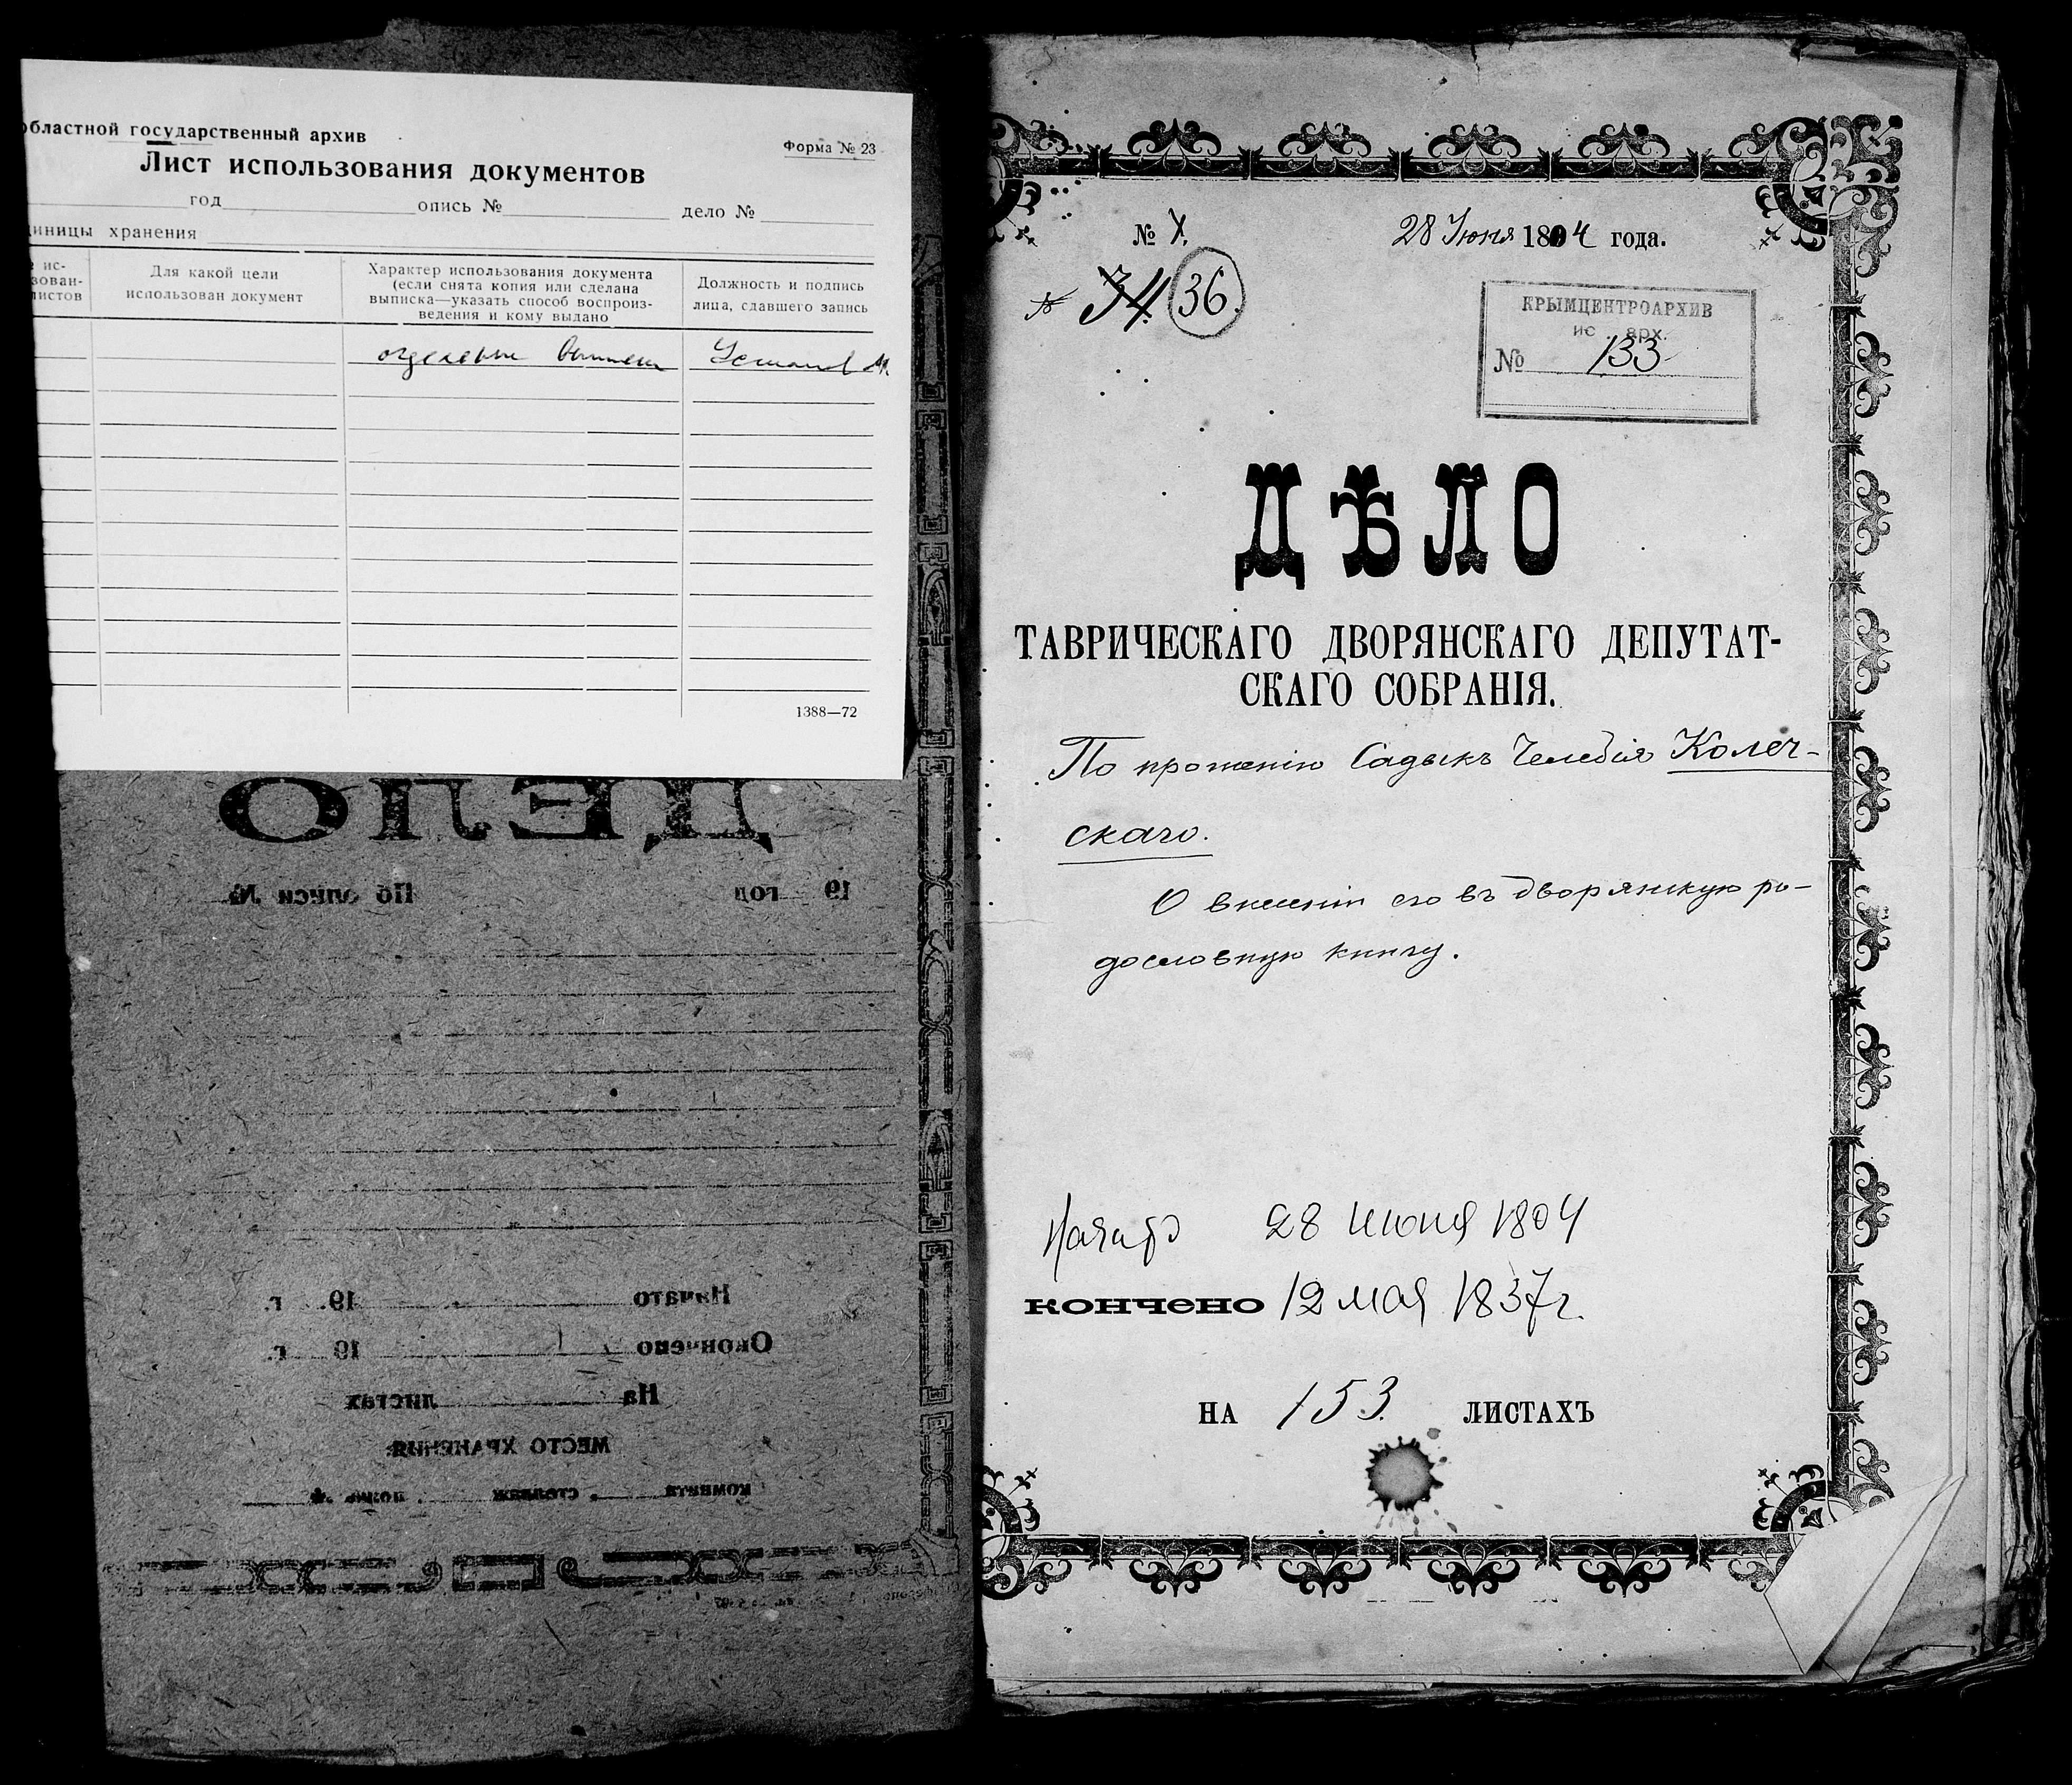 областной государственный архив
Форма № 23
Лист использования документов
год опись № дело №
диницы хранения
ис-
зован-
листов
Для какой цели
использован документ
Характер использования документа
(если снята копия или сделана
выписка—указать способ воспроиз-
ведения и кому выдано
Должность и подпись
лица, сдавшего запись
1388—72
ДЕЛО
19 год По описи №
Начато 19 г.
Окончено 19 г.
На листах
МЕСТО ХРАНЕНИЯ
комната стеллаж полка
№ 28 Июня 1804 года.
34 36
КРЫМЦЕНТРОАРХИВ
ис . арх.
№ 133
ДѢЛО
ТАВРИЧЕСКАГО ДВОРЯНСКАГО ДЕПУТАТ-
СКАГО СОБРАНІЯ.
По прошенію Садыкъ Челебія Колеч-
скаго.
О внесеніи его въ дворянскую ро-
дословную книгу.
Начато 28 июня 1804
кончено 12 мая 1837 г.
НА 153 ЛИСТАХЪ